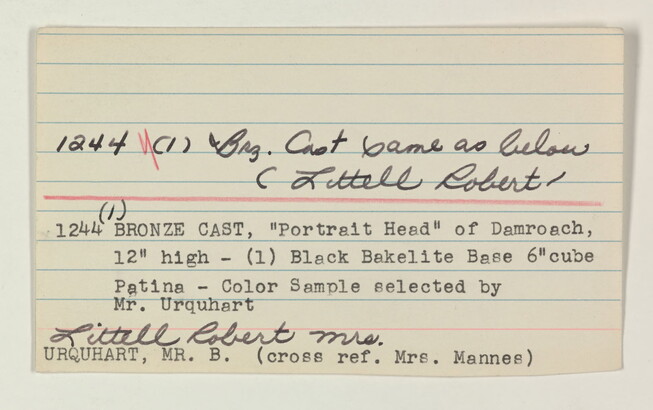 1244 (1) Brz. Cast same as below
( Littell Robert,
(1)
1244 BRONZE CAST, "Portrait Head" of Damroach,
12" high - (1) Black Bakelite Base 6"cube
Patina - Color Sample selected by
Mr. Urquhart
Littell Robert Mrs.
URQUHART, MR. B. (cross ref. Mrs. Mannes)